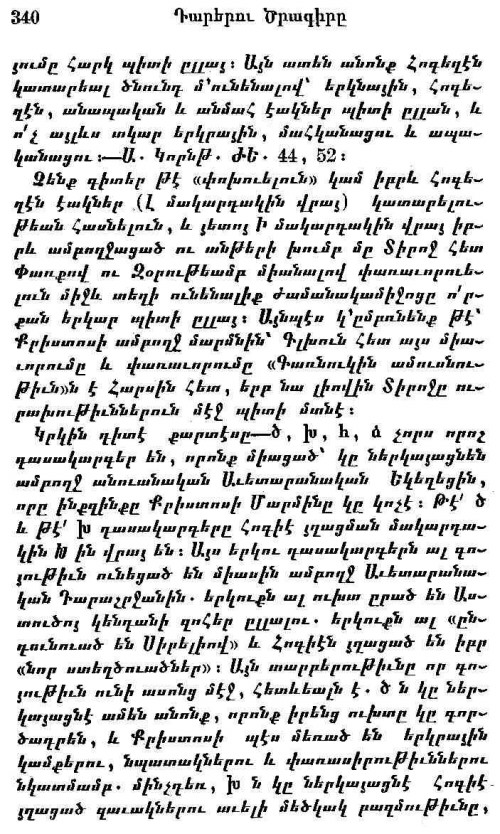 340 Դարերու Ծրագիրը
յումը հարկ պիտի ըլլայ։ Այն ատեն անոնք Հոգեղէն
կատարեալ ծնունդ մ'ունենալով՝ երկնային, Հոգե-
ղէն, անապական և անմահ էակներ պիտի ըլլան, և
ո՛չ այլևս տկար երկրային, մահկանացու և ապա-
կանացու։—Ա. Կորնթ. ԺԵ. 44, 52։
Չենք գիտեր թէ «փոխուելուն» կամ իբրև Հոգե-
ղէն էակներ (Լ մակարդակին վրայ) կատարելու-
թեան հասնելուն, և յետոյ Ի մակարդակին վրայ իբ-
րև ամբողջացած ու անթերի խումբ մը Տիրոջ հետ
Փառքով ու Զօրութեամբ միանալով փառաւորուե-
լուն միջև տեղի ունենալիք ժամանակամիջոցը ո՛ր-
քան երկար պիտի ըլլայ։ Այնպէս կ'ըմբռնենք թէ՝
Քրիստոսի ամբողջ մարմնին՝ Գլխուն հետ այս միա-
ւորումը և փառաւորումը «Գառնուկին ամուսնու-
թիւն»ն է Հարսին հետ, երբ նա լիովին Տիրոջը ու-
րախութիւններուն մէջ պիտի մտնէ։
Կրկին դիտէ քարտէսը—ծ, խ, հ, ձ չորս որոշ
դասակարգեր են, որոնք միացած՝ կը ներկայացնեն
ամբողջ անուանական Աւետարանական Եկեղեցին,
որը ինքզինքը Քրիստոսի Մարմինը կը կոչէ։ Թէ՛ ծ
և թէ՛ խ դասակարգերը Հոգիէ յղացման մակարդա-
կին Խ ին վրայ են։ Այս երկու դասակարգերն ալ գո-
յութիւն ունեցած են միասին ամբողջ Աւետարանա-
կան Դարաշրջանին. երկուքն ալ ուխտ ըրած են Աս-
տուծոյ կենդանի զոհեր ըլլալու. երկուքն ալ «ըն-
դունուած են Սիրելիով» և Հոգիէն յղացած են իբր
«նոր ստեղծուածներ»։ Այն տարբերութիւնը որ գո-
յութիւն ունի ասոնց մէջ, հետևեալն է. ծ ն կը ներ-
կայացնէ ամեն անոնք, որոնք իրենց ուխտը կը գոր-
ծադրեն, և Քրիստոսի պէս մեռած են երկրային
կամքերու, նպատակներու և փառասիրութիւններու
նկատմամբ. մինչդեռ, խ ն կը ներկայացնէ Հոգիէ
յղացած զաւակներու աւելի մեծկակ բազմութիւնը,